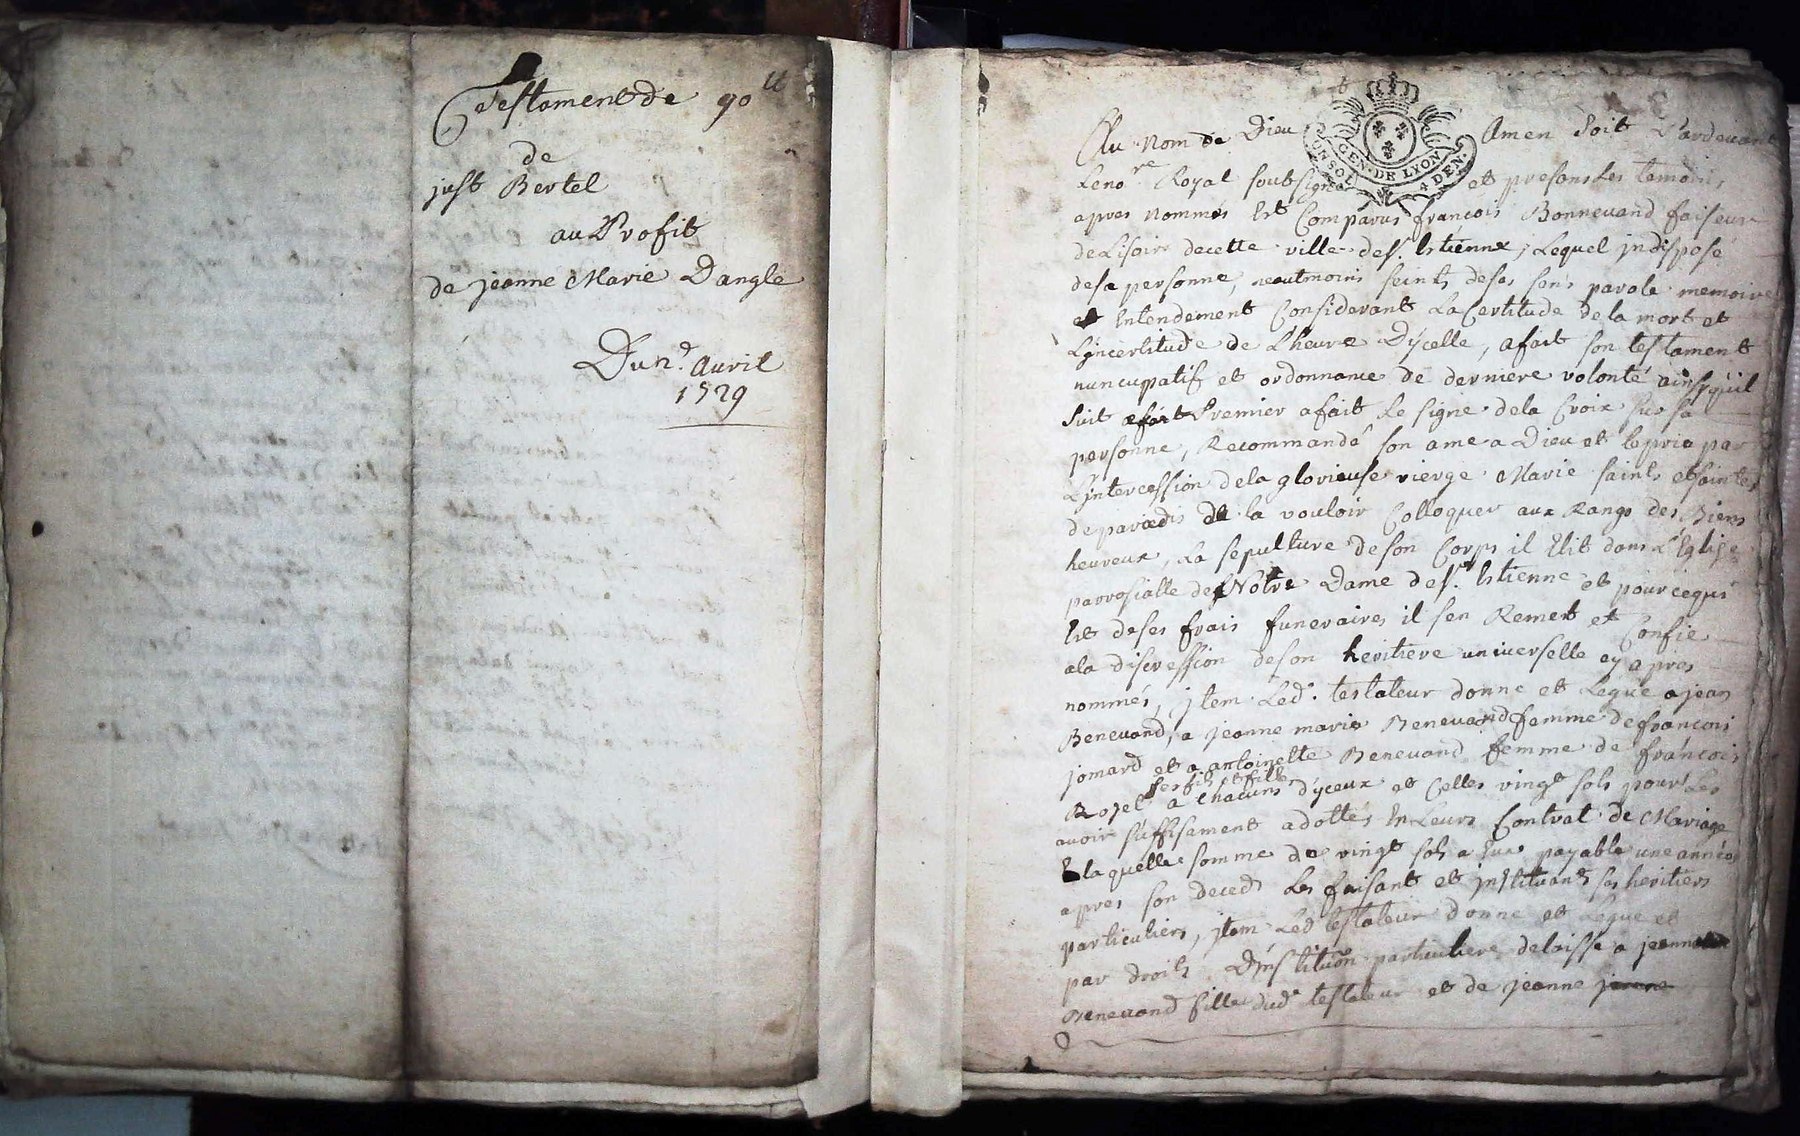 Testament de 90 tt
de
just Bertel
au Profit
de jeanne Marie Dangle
Du 2d. Avril
1729
Au Nom de Dieu Amen Soit Pardevant
GEN. DE LYON
4 DEN.
Le no.re Royal soubsigné et presens les temoins
apres nommés Est Comparus francois Bonnevand faiseur
de Lisoir de cette ville de s.t Estienne, Lequel jndisposé
de sa personne, neautmoins seints de ses sens parole memoire
et Entendement Considerant La Certitude de la mort et
L'jncertitude de L'heure D'ycelle, a fait son testament
nuncupatif et ordonnance de derniere volonté ainsy qu'il
suit Premier a fait Le signe de la Croix sur sa
personne, Recommandé son ame a Dieu et le prie par
L'jntercession de la glorieuse vierge Marie saints et saintes
de paradis de la vouloir Colloquer aux Rangs des Biens
heureux, La sepulture de son Corps il Elit dans L'Eglise
parrosialle de Notre Dame de s.t Estienne et pour ce qui
Est de ses frais funeraires il s'en Remet et Confie
a la discression de son heritiere universelle cy apres
nommés, jtem Led. testateur donne et Legue a jean
Benevand, a jeanne marie Benevand femme de francois
jomard et a antoinette Benevand femme de francois
ses fils et filles
Rozel a Chacuns d'yceux et Celles vingt sols pour Les
avoir suffisement adottés En Leurs Contrat de Mariage
Laquelle somme de vingt sols a Eux payable une année
apres son deceds Les faisant et jnstituant ses heritiers
particuliers, jtem Led testateur donne et Legue et
par droits D'jnstitution particuliere delaisse a jeanne
Benevand fille dud. testateur et de jeanne